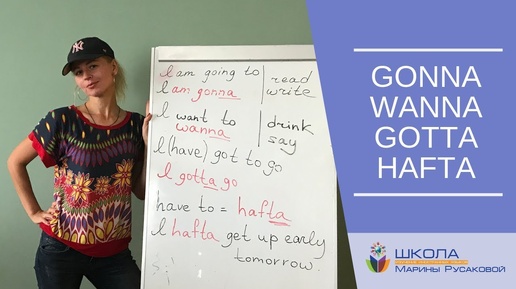 I am going to
I am gonna
read
write
I want to
wanna
drink
say
I (have) got to go
I gotta go
have to = hafta
I hafta get up early
tomorrow.
GONNA
WANNA
GOTTA
HAFTA
ШКОЛА
Марины Русаковой